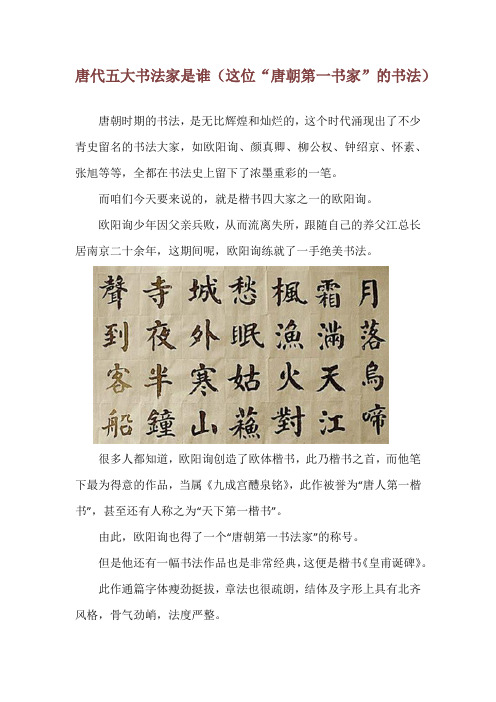 唐代五大书法家是谁（这位“唐朝第一书家”的书法）
唐朝时期的书法，是无比辉煌和灿烂的，这个时代涌现出了不少
青史留名的书法大家，如欧阳询、颜真卿、柳公权、钟绍京、怀素、
张旭等等，全都在书法史上留下了浓墨重彩的一笔。
而咱们今天要来说的，就是楷书四大家之一的欧阳询。
欧阳询少年因父亲兵败，从而流离失所，跟随自己的养父江总长
居南京二十余年，这期间呢，欧阳询练就了一手绝美书法。
月落烏啼
霜滿天江
楓漁火對
愁眠姑蘓
城外寒山
寺夜半鐘
聲到客船
很多人都知道，欧阳询创造了欧体楷书，此乃楷书之首，而他笔
下最为得意的作品，当属《九成宫醴泉铭》，此作被誉为“唐人第一楷
书”，甚至还有人称之为“天下第一楷书”。
由此，欧阳询也得了一个“唐朝第一书法家”的称号。
但是他还有一幅书法作品也是非常经典，这便是楷书《皇甫诞碑》。
此作通篇字体瘦劲挺拔，章法也很疏朗，结体及字形上具有北齐
风格，骨气劲峭，法度严整。